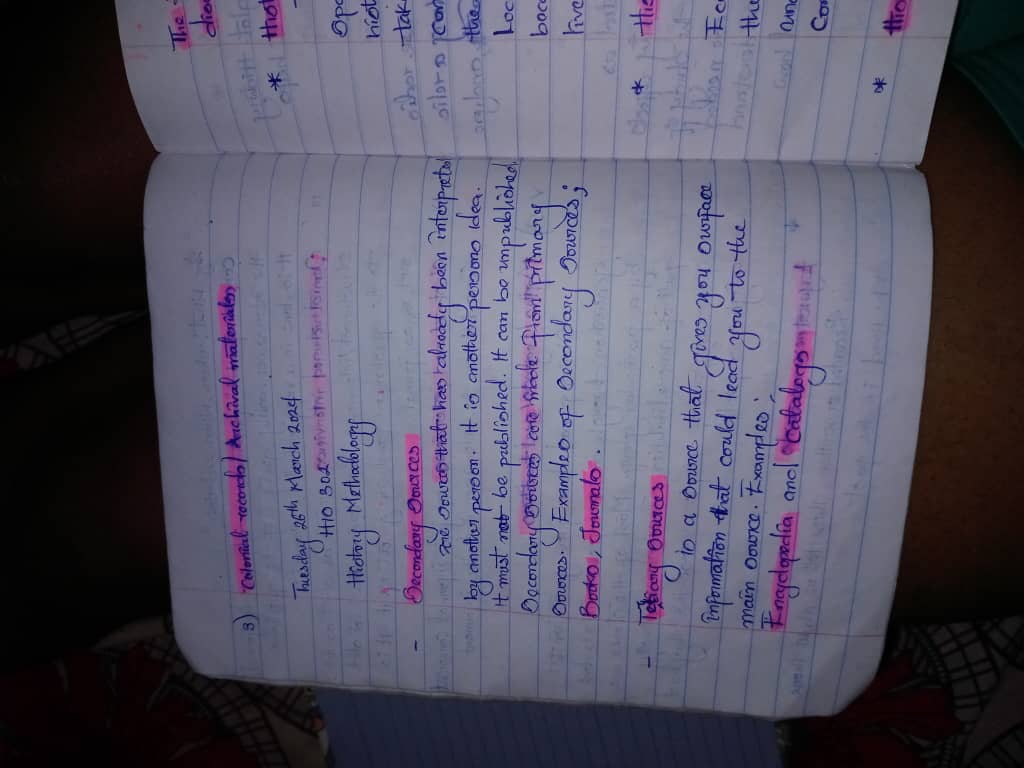 3) Colonial records/ Archival materials
Tuesday 26th March 2024
HIS 302
History Methodology
- Secondary Sources
are sources that has already been interpreted
by another person. It is another persons idea.
It must not be published. It can be unpublished.
Secondary sources are made from primary
sources. Examples of Secondary Sources;
Books, Journals.
- Tetiary Sources
is a source that gives you surface
information that could lead you to the
main source. Examples;
Encyclopedia and Catalogs
The
*
*
the
*